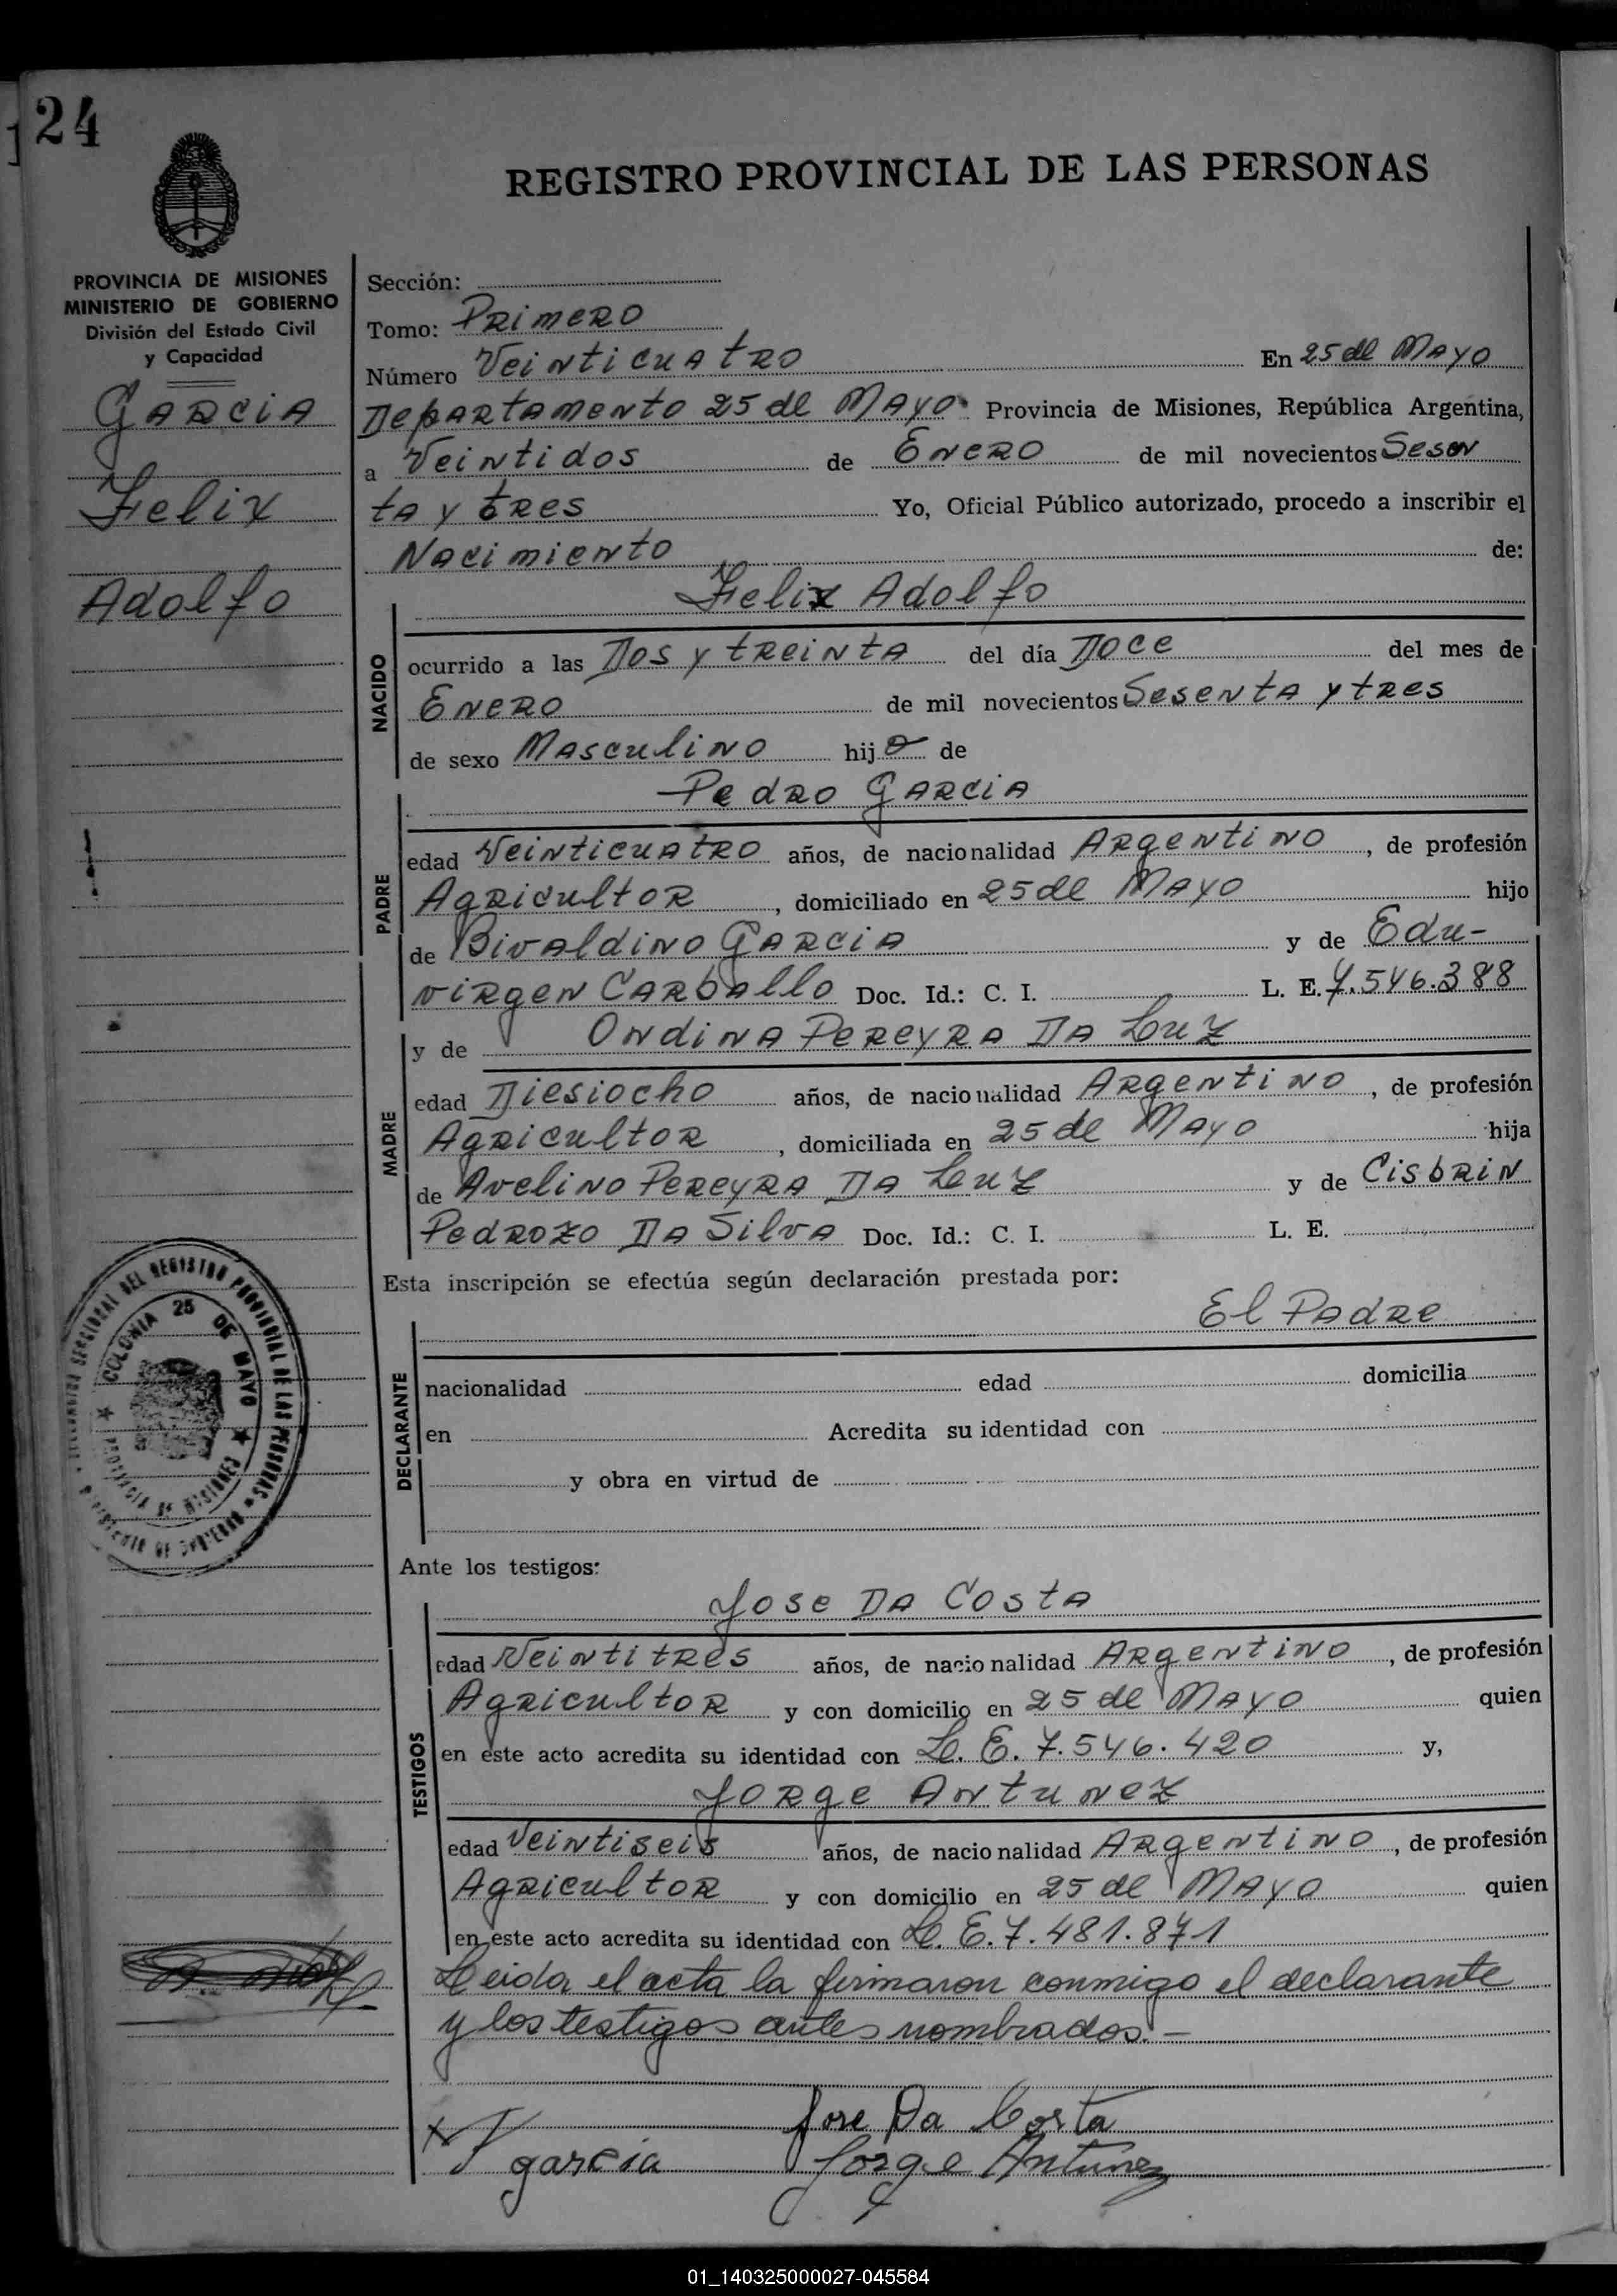 24
REGISTRO PROVINCIAL DE LAS PERSONAS
PROVINCIA DE MISIONES
MINISTERIO DE GOBIERNO
División del Estado Civil
y Capacidad
Garcia
Felix
Adolfo
Sección:
Tomo: Primero
Número Veinticuatro En 25 de Mayo
Departamento 25 de Mayo Provincia de Misiones, República Argentina,
a Veintidos de Enero de mil novecientos Sesen
ta y tres Yo, Oficial Público autorizado, procedo a inscribir el
Nacimiento de:
Felix Adolfo
NACIDO
ocurrido a las Dos y treinta del día Doce del mes de
Enero de mil novecientos Sesenta y tres
de sexo Masculino hijo de
Pedro Garcia
PADRE
edad Veinticuatro años, de nacionalidad Argentino, de profesión
Agricultor, domiciliado en 25 de Mayo hijo
de Bivaldino Garcia y de Edu-
virgen Carballo Doc. Id.: C. I. L. E. 7.546.388
y de Ondina Pereyra Da Luz
MADRE
edad Diesiocho años, de nacionalidad Argentino, de profesión
Agricultor, domiciliada en 25 de Mayo hija
de Avelino Pereyra Da Luz y de Cisbrin
Pedrozo Da Silva Doc. Id.: C. I. L. E.
Esta inscripción se efectúa según declaración prestada por:
El Padre
DECLARANTE
nacionalidad edad domicilia
en Acredita su identidad con
y obra en virtud de
COLONIA 25 DE MAYO
PROVINCIA DE MISIONES
Ante los testigos:
Jose Da Costa
TESTIGOS
edad Veintitres años, de nacionalidad Argentino, de profesión
Agricultor y con domicilio en 25 de Mayo quien
en este acto acredita su identidad con L. E. 7.546.420 y,
Jorge Antunez
edad Veintiseis años, de nacionalidad Argentino, de profesión
Agricultor y con domicilio en 25 de Mayo quien
en este acto acredita su identidad con L. E. 7.481.871
Leida el acta la firmaron conmigo el declarante
y los testigos antes nombrados.-
garcia
Jose Da Costa
Jorge Antunez
01_140325000027-045584